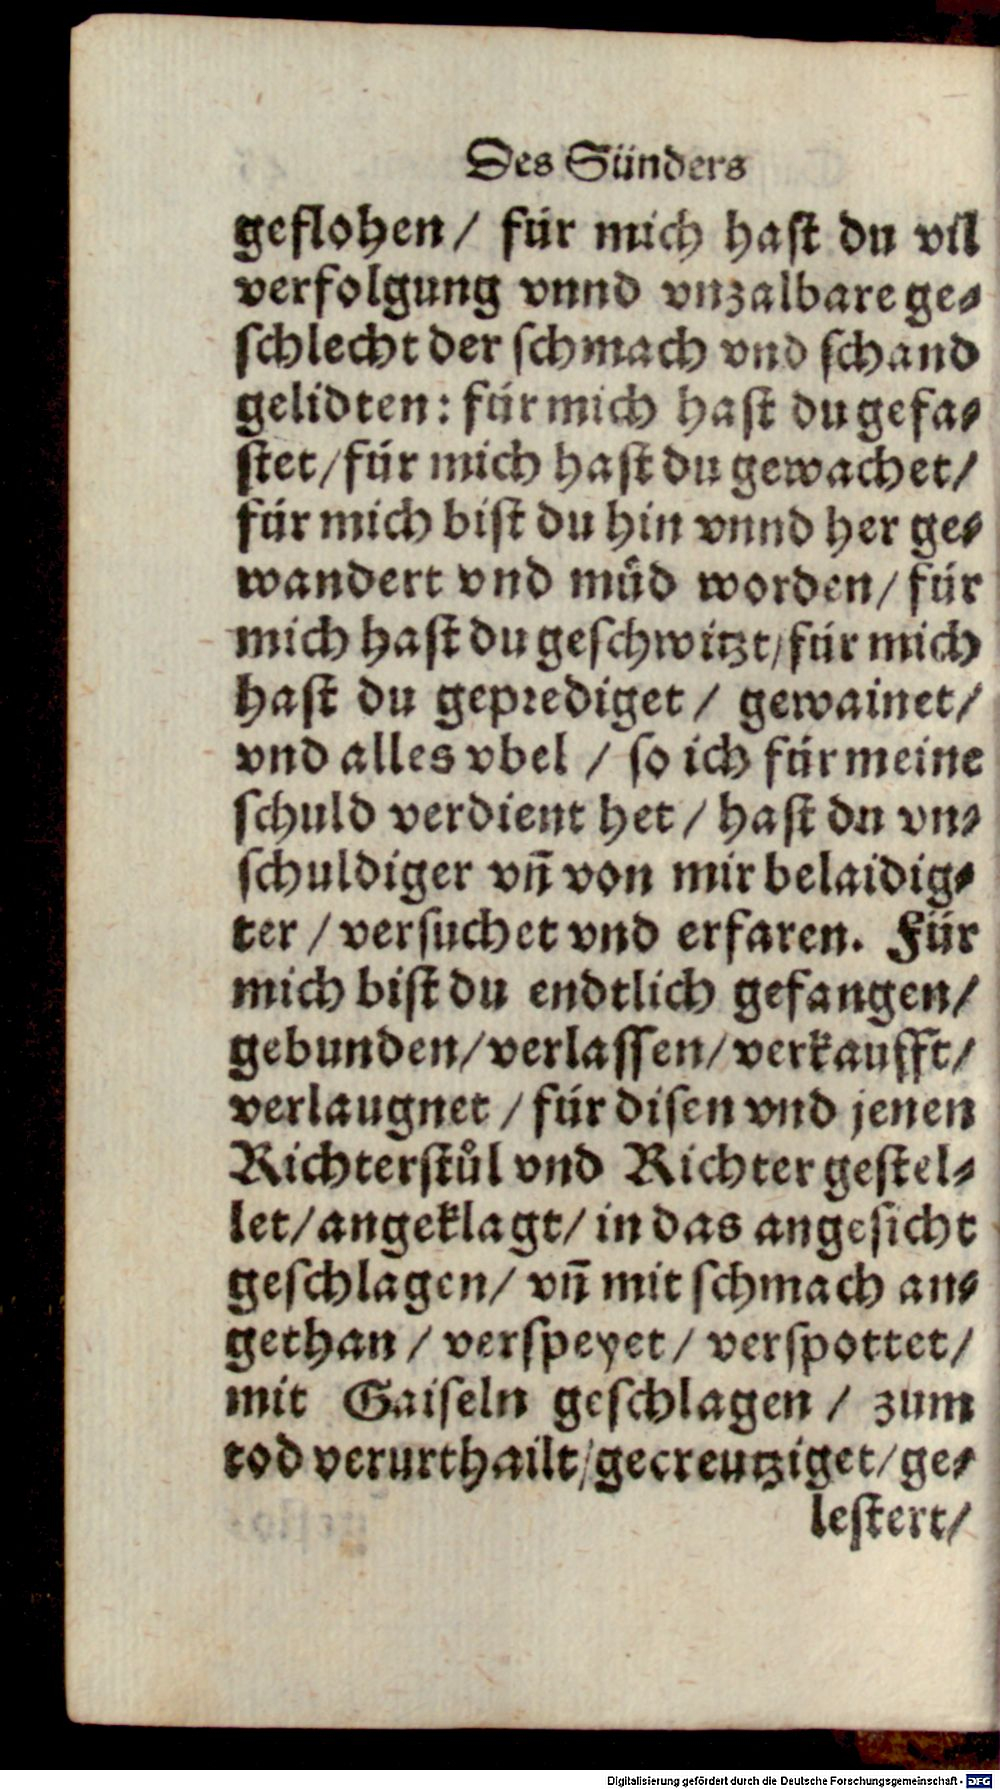 Des Sünders
geflohen / für mich hast du vil
verfolgung vnnd vnzalbare ge⸗
schlecht der schmach vnd schand
gelidten: für mich hast du gefa⸗
stet/ für mich hast du gewachet/
für mich bist du hin vnnd her ge⸗
wandert vnd müd worden/ für
mich hast du geschwitzt/ für mich
hast du geprediget / gewainet/
vnd alles vbel / so ich für meine
schuld verdient het / hast du vn⸗
schuldiger vn̄ von mir belaidig⸗
ter / versuchet vnd erfaren. Für
mich bist du endtlich gefangen/
gebunden/ verlassen/ verkaufft/
verlaugnet / für disen vnd jenen
Richterstůl vnd Richter gestel⸗
let/ angeklagt/ in das angesicht
geschlagen/ vn̄ mit schmach an⸗
gethan / verspeyet / verspottet/
mit Gaiseln geschlagen / zum
tod verurthailt/ gecreutziget/ ge⸗
lestert/
Digitalisierung gefördert durch die Deutsche Forschungsgemeinschaft - DFG